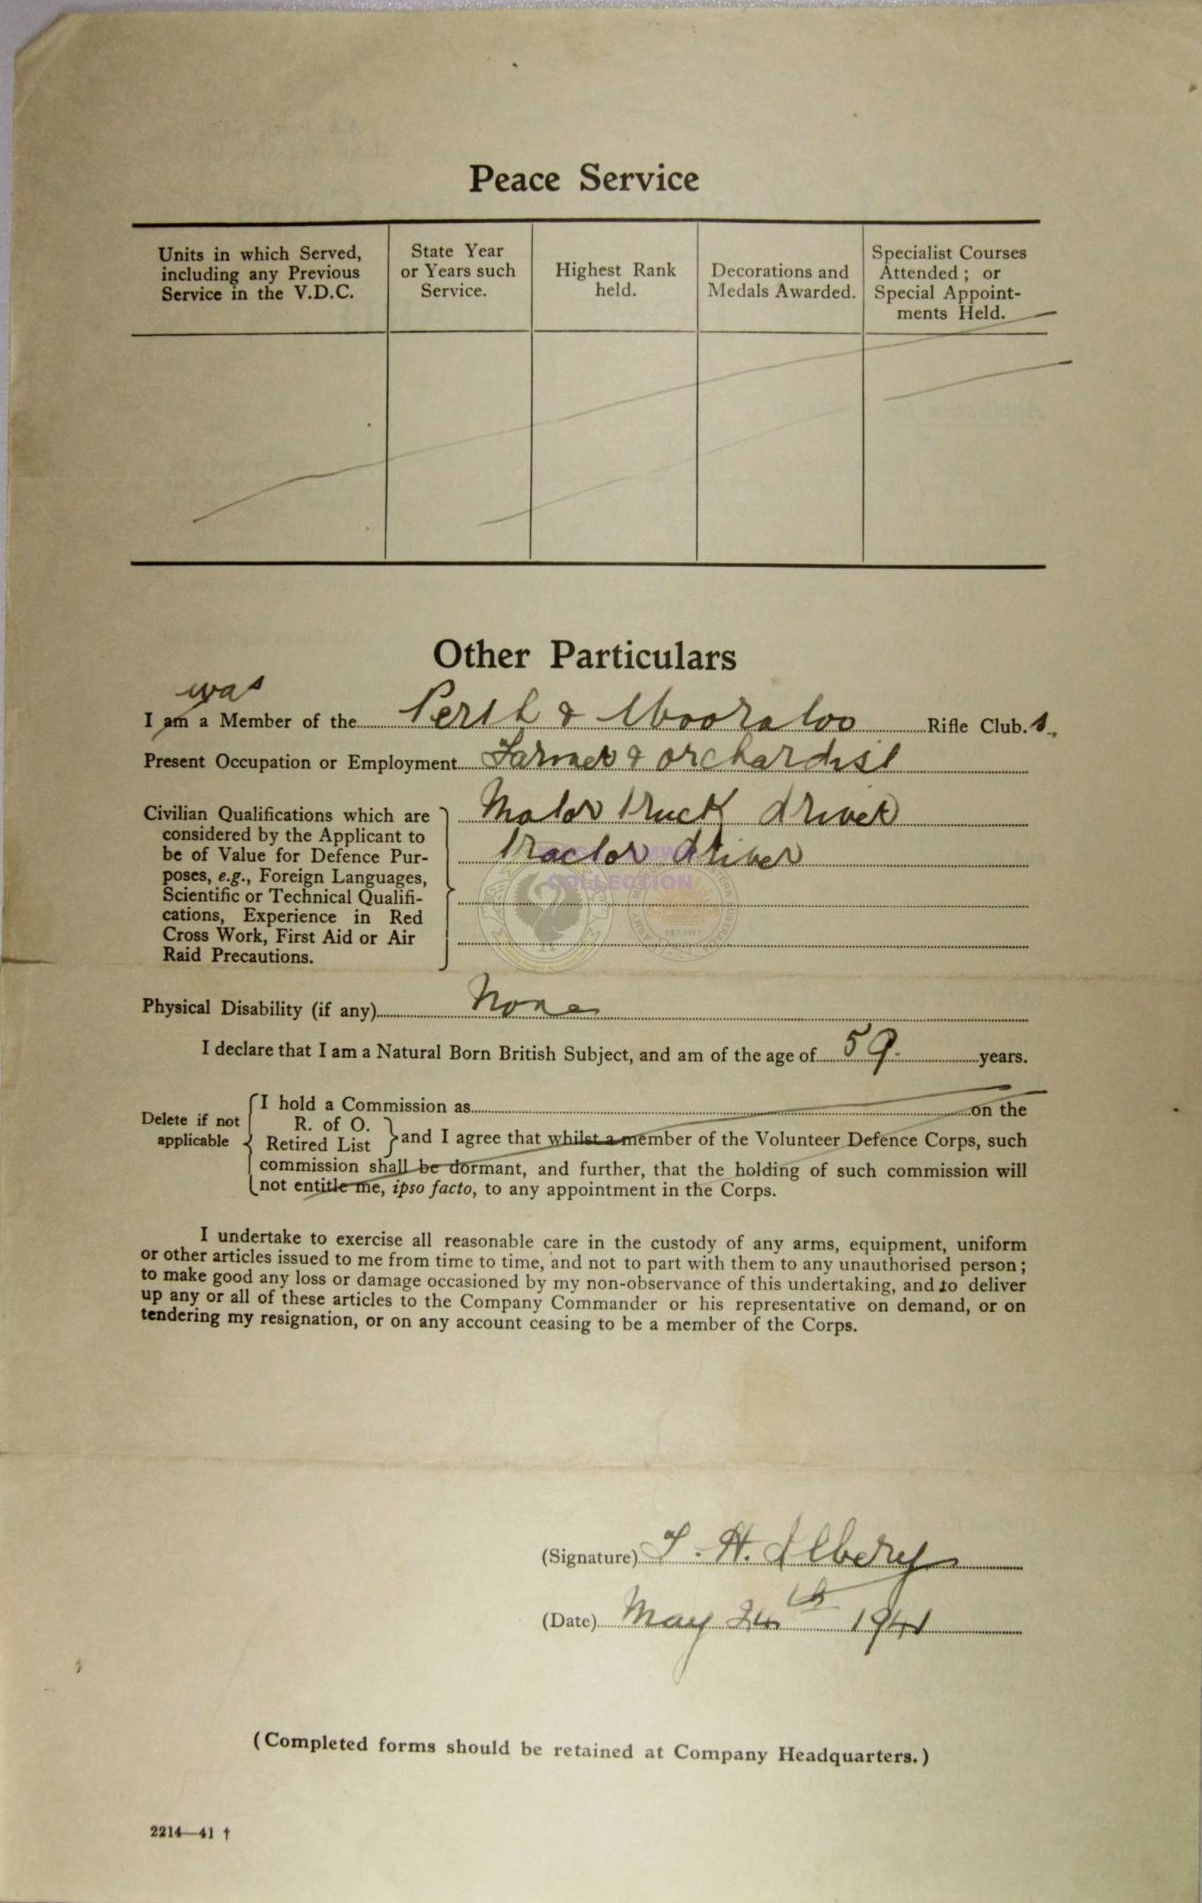 Peace Service
Units in which Served,
including any Previous
Service in the V.D.C.
State Year
or Years such
Service.
Highest Rank
held.
Decorations and
Medals Awarded.
Specialist Courses
Attended ; or
Special Appoint-
ments Held.
Other Particulars
was
I am a Member of the Perth & Wooraloo Rifle Club.s.
Present Occupation or Employment Farmer & orchardist
Civilian Qualifications which are
considered by the Applicant to
be of Value for Defence Pur-
poses, e.g., Foreign Languages,
Scientific or Technical Qualifi-
cations, Experience in Red
Cross Work, First Aid or Air
Raid Precautions.
Motor truck driver
tractor driver
COLLECTION
Physical Disability (if any) None
I declare that I am a Natural Born British Subject, and am of the age of 59. years.
Delete if not
applicable
I hold a Commission as on the
R. of O.
Retired List
and I agree that whilst a member of the Volunteer Defence Corps, such
commission shall be dormant, and further, that the holding of such commission will
not entitle me, ipso facto, to any appointment in the Corps.
I undertake to exercise all reasonable care in the custody of any arms, equipment, uniform
or other articles issued to me from time to time, and not to part with them to any unauthorised person ;
to make good any loss or damage occasioned by my non-observance of this undertaking, and to deliver
up any or all of these articles to the Company Commander or his representative on demand, or on
tendering my resignation, or on any account ceasing to be a member of the Corps.
(Signature) T. H. Ilbery
(Date) May 24th 1941
(Completed forms should be retained at Company Headquarters.)
2214—41 †